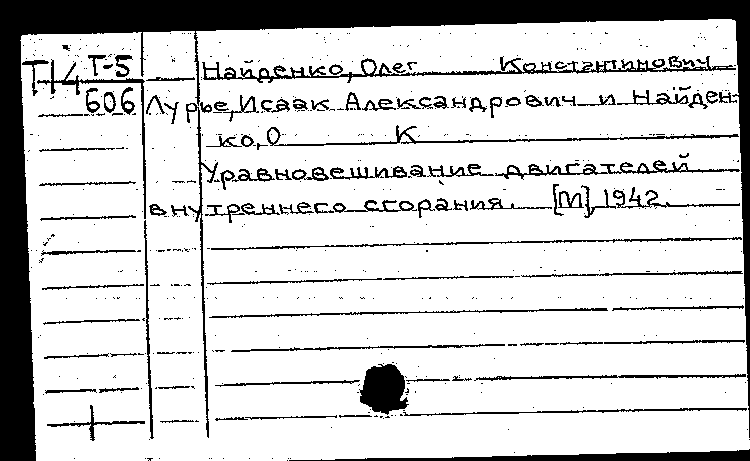 Т-5 Найденко, Олег Константинович
Т14
606 Лурье, Исаак Александрович и Найден-
ко, О К
Уравновешивание двигателей
внутреннего сгорания. [М], 1942.